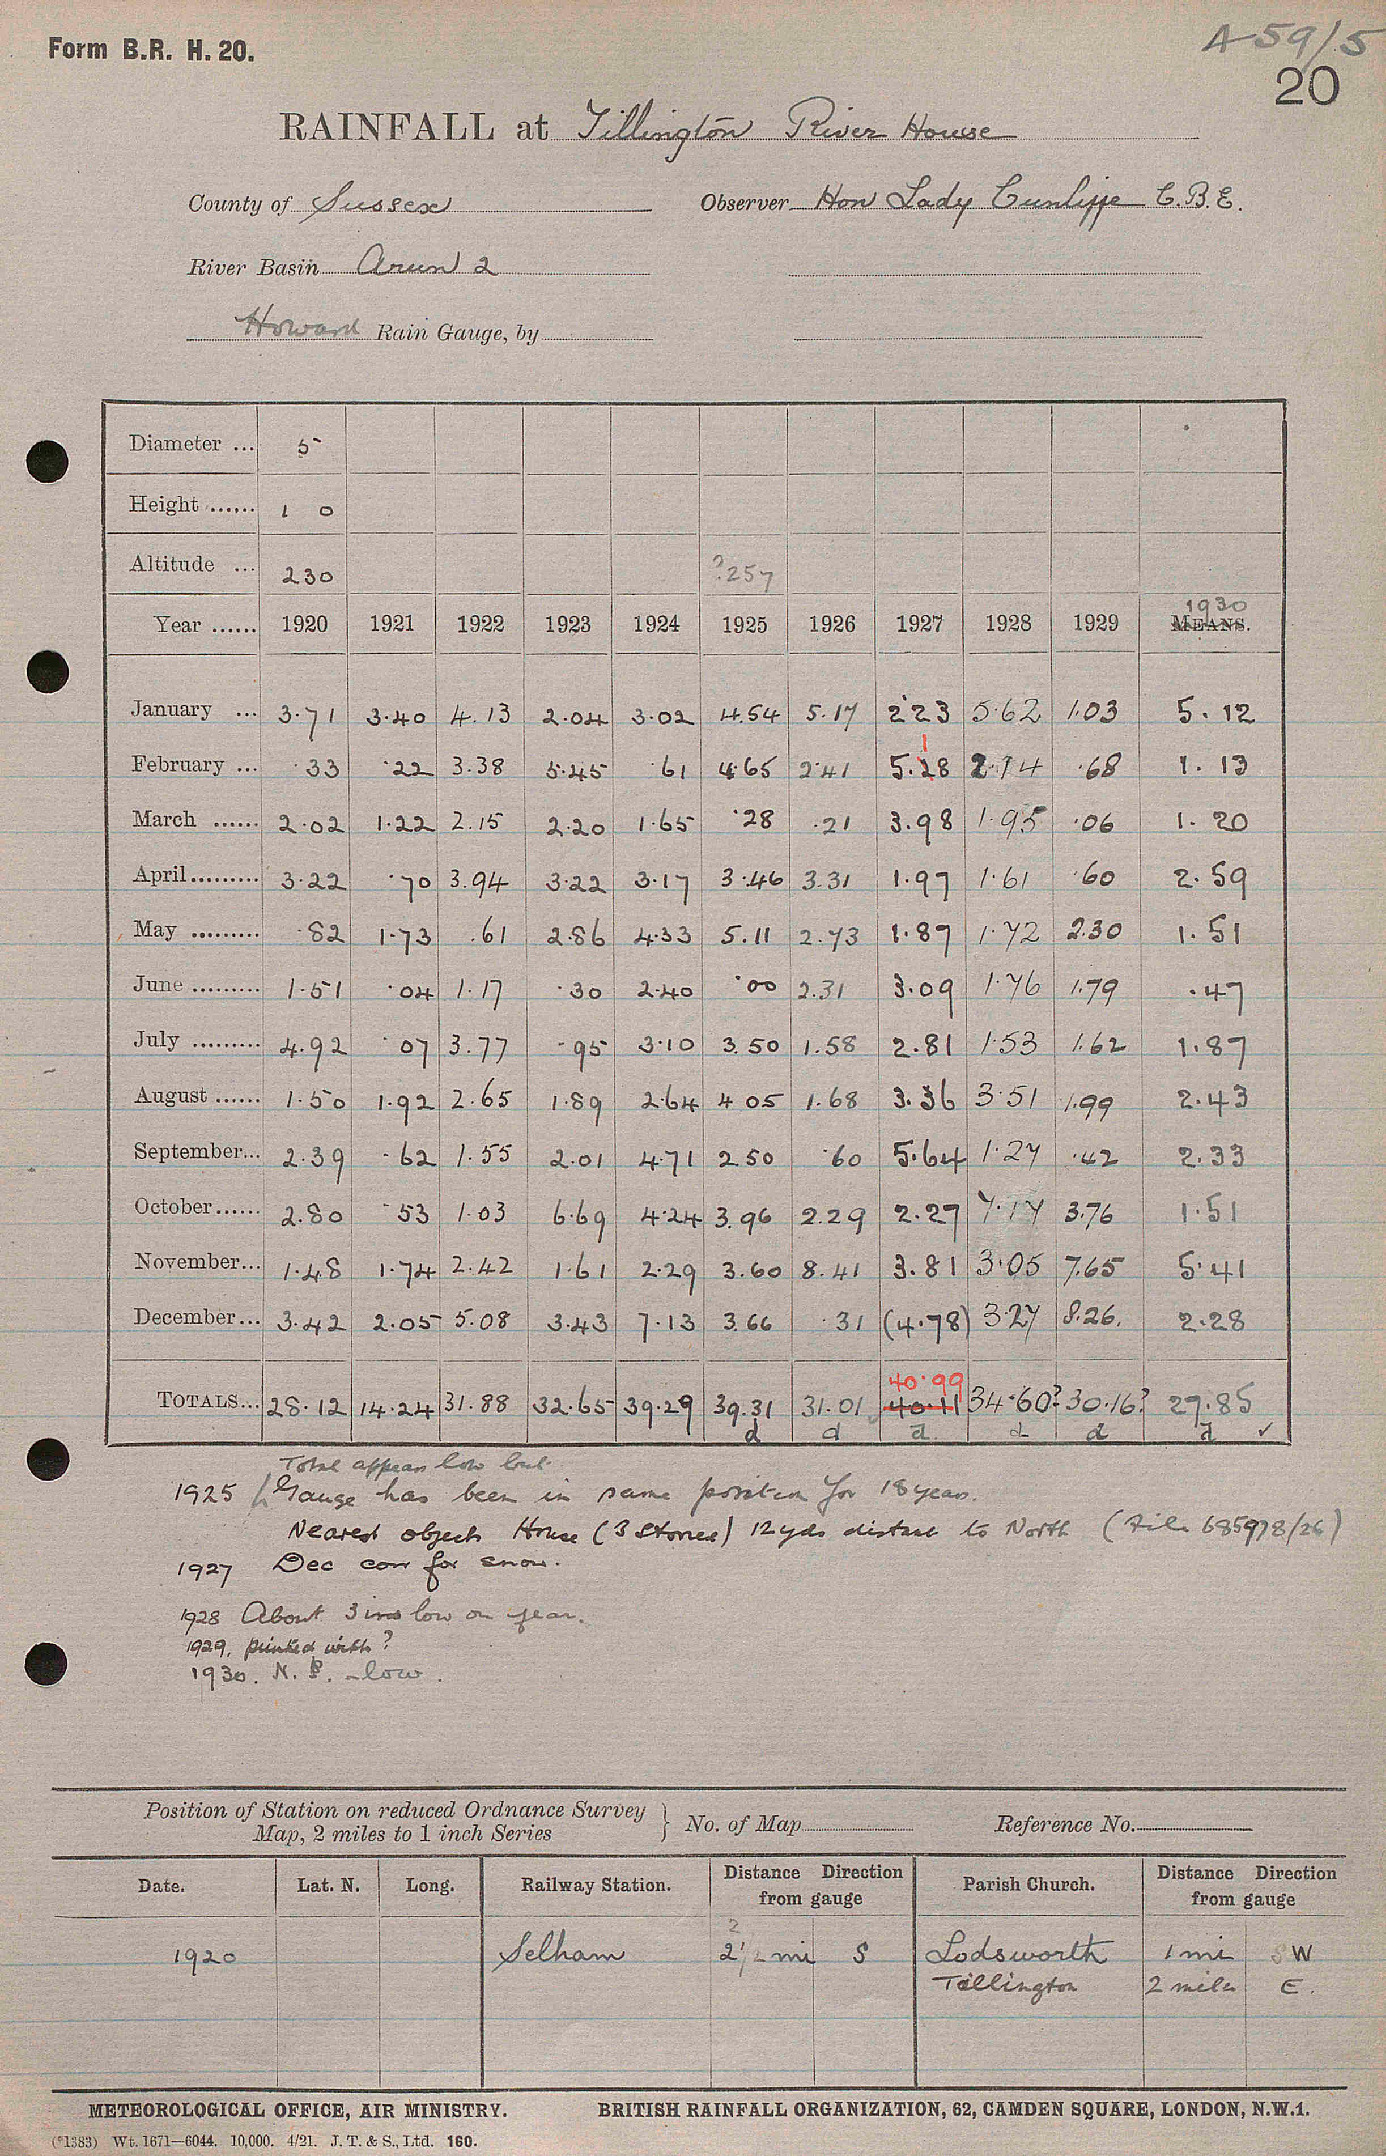 Form B.R. H. 20.
A 59/5
20
RAINFALL at Tillington River House
County of Sussex Observer Hon Lady Cunliffe C.B.E.
River Basin Arun 2
Howard Rain Gauge, by
Diameter ... 5
Height ...... 1 0
Altitude ... 230 ?257
Year ...... 1920 1921 1922 1923 1924 1925 1926 1927 1928 1929 MEANS. 1930
January ... 3.71 3.40 4.13 2.04 3.02 4.54 5.17 2.23 5.62 1.03 5.12
February ... .33 .22 3.38 5.45 .61 4.65 2.41 5.18 2.14 .68 1.13
March ...... 2.02 1.22 2.15 2.20 1.65 .28 .21 3.98 1.95 .06 1.20
April ......... 3.22 .70 3.94 3.22 3.17 3.46 3.31 1.97 1.61 .60 2.59
May ......... .82 1.73 .61 2.86 4.33 5.11 2.73 1.87 1.72 2.30 1.51
June ......... 1.51 .04 1.17 .30 2.40 .00 2.31 3.09 1.76 1.79 .47
July ......... 4.92 .07 3.77 .95 3.10 3.50 1.58 2.81 1.53 1.62 1.87
August ...... 1.50 1.92 2.65 1.89 2.64 4.05 1.68 3.36 3.51 1.99 2.43
September... 2.39 .62 1.55 2.01 4.71 2.50 .60 5.64 1.27 .42 2.33
October ...... 2.80 .53 1.03 6.69 4.24 3.96 2.29 2.27 7.17 3.76 1.51
November... 1.48 1.74 2.42 1.61 2.29 3.60 8.41 3.81 3.05 7.65 5.41
December... 3.42 2.05 5.08 3.43 7.13 3.66 .31 (4.78) 3.27 8.26. 2.28
40.99
TOTALS... 28.12 14.24 31.88 32.65 39.29 39.31 31.01 40.11 34.60? 30.16? 27.85
d d d d d d ✓
Total appears low but
1925 Gauge has been in same position for 18 years.
Nearest object House (3 stories) 12 yds distant to North (File 685978/26)
1927 Dec corr for snow.
1928 About 3 ins low on year.
1929. printed with ?
1930. N.P. - low.
Position of Station on reduced Ordnance Survey Map, 2 miles to 1 inch Series } No. of Map Reference No.
Date. Lat. N. Long. Railway Station. Distance Direction from gauge Parish Church. Distance Direction from gauge
2
1920 Selham 2 1/2 mi S Lodsworth 1 mi SW
Tillington 2 miles E.
METEOROLOGICAL OFFICE, AIR MINISTRY. BRITISH RAINFALL ORGANIZATION, 62, CAMDEN SQUARE, LONDON, N.W.1.
(*1383) Wt. 1671—6044. 10,000. 4/21. J. T. & S., Ltd. 160.